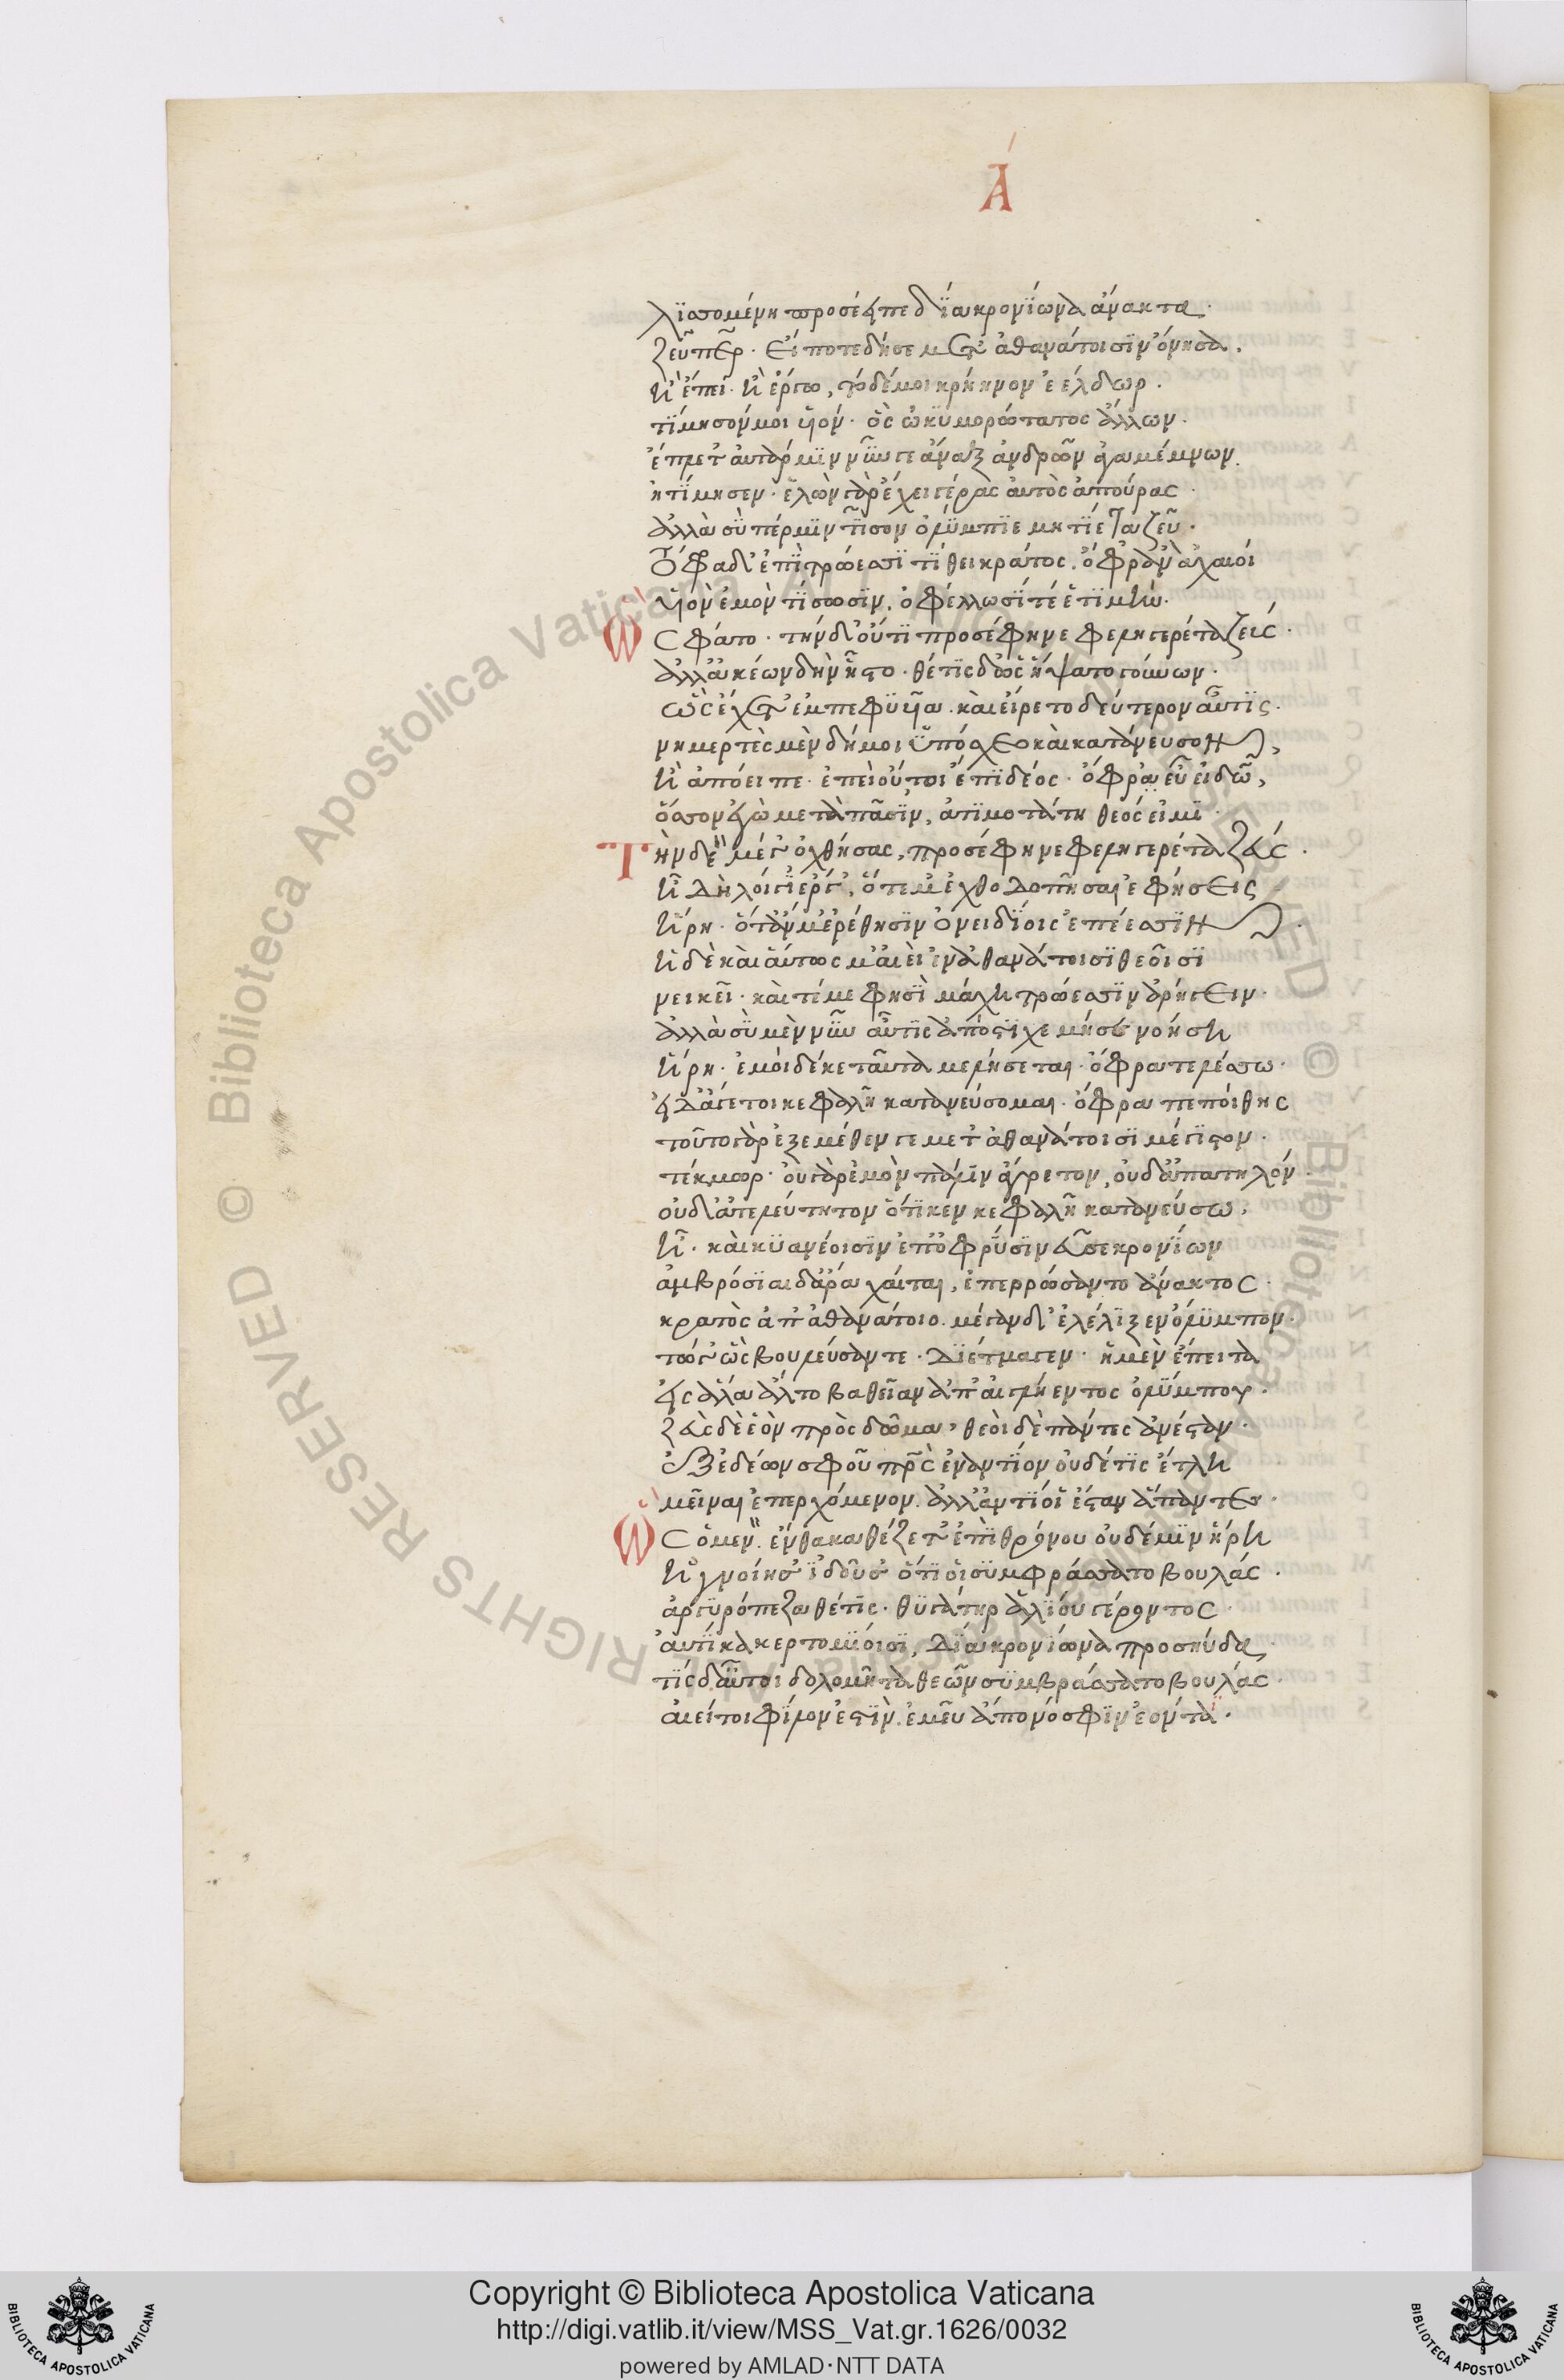 Ἁ
λισσομένη προσέειπε δία κρονίωνα ἄνακτα.
ζεῦ πάτερ. εἴ ποτε δήσε μετ' ἀθανάτοισιν ὄνησα,
ἢ ἔπει. ἢ ἔργω, τόδέ μοι κρήηνον ἐέλδωρ.
τίμησόν μοι υἱόν. ὃς ὠκυμορώτατος ἄλλων.
ἔπλετ' ἀυτάρ μιν νῦν γε ἄναξ ἀνδρῶν ἀγαμέμνων.
ητίμησεν. ἑλὼν γὰρ ἔχει γέρας ἀυτὸς ἀπούρας.
ἀλλὰ σύ πέρ μιν τῖσον ὀλύμπιε μητίετα ζεῦ.
τόφρα δ' ἐπὶ τρώεσσι τίθει κράτος. ὄφρ' ἂν ἀχαιοί
υἱὸν ἐμὸν τίσωσιν, ὀφέλλωσί τέ ἑ τιμῆ.
Ὣς φάτο. τὴν δ' οὔτι προσέφη νεφεληγερέτα ζεύς.
ἀλλ' ἀκέων δὴν ἧστο. θέτις δ' ὡς ἥψατο γούνων.
ὣς ἔχετ' ἐμπεφυυῖα. καὶ εἴρετο δεύτερον αὖτις.
νημερτὲς μὲν δή μοι ὑπόσχεο καὶ κατάνευσον,
ἢ ἀπόειπε. ἐπεὶ οὔ τοι ἔπι δέος. ὄφρα εὖ εἰδῶ,
ὅσσον ἐγὼ μετὰ πᾶσιν, ἀτιμοτάτη θεός εἰμι.
Τὴν δὲ μέγ' ὀχθήσας, προσέφη νεφεληγερέτα ζεύς.
ἦ δὴ λοίγι' ἔργ', ὅτε μ' ἐχθοδοπῆσαι ἐφήσεις
ἥρη. ὅτ' ἄν μ' ἐρέθησιν ὀνειδίοις ἐπέεσσιν.
ἡ δὲ καὶ αὔτως μ' αἰεὶ ἐν ἀθανάτοισι θεοῖσι
νεικεῖ. καί τέ με φησὶ μάχη τρώεσσιν ἀρήγειν.
ἀλλὰ σὺ μὲν νῦν αὖτις ἀπόστιχε μή σε νοήση
ἥρη. ἐμοὶ δέ κε ταῦτα μελήσεται. ὄφρα τελέσσω.
εἰ δ' ἄγε τοι κεφαλῆ κατανεύσομαι. ὄφρα πεποίθης
τοῦτο γὰρ ἐξ ἐμέθεν γε μετ' ἀθανάτοισι μέγιστον.
τέκμωρ. οὐ γὰρ ἐμὸν παλιν ἀγρετον, οὐδ' ἀπατηλόν.
οὐδ' ἀτελεύτητον ὅτι κεν κεφαλῆ κατανεύσω,
ἦ. καὶ κυανέοισιν ἐπ' ὀφρύσιν νεῦσε κρονίων
ἀμβρόσιαι δ' ἄρα χαῖται, ἐπερρώσαντο ἄνακτος.
κρατὸς ἀπ' ἀθανάτοιο. μέγαν δ' ἐλέλιξεν ὄλυμπον.
τώγ' ὣς βουλεύσαντε. διέτμαγεν. ἡ μὲν ἔπειτα
εἰς ἅλα ἄλτο βαθεῖαν ἀπ' αἰγλήεντος ὀλύμπου.
ζεὺς δὲ ἑὸν πρὸς δῶμα, θεοὶ δὲ πάντες ἀνέσταν.
ἐξ ἑδέων σφοῦ πρὸς ἐναντίον οὐδέ τις ἔτλη
μεῖναι ἐπερχόμενον. ἀλλ' ἀντίοι ἔσταν ἅπαντες.
Ὣς ὁ μὲν ἔνθα καθέζετ' ἐπὶ θρόνου οὐδέ μιν ἥρη
ἠγνοίησ' ἰδοῦσ' ὅτι οἱ συμφράσσατο βουλάς.
ἀργυρόπεζα θέτις. θυγάτηρ ἁλίου γέροντος.
αὐτίκα κερτομίοισι, δία κρονίωνα προσηύδα,
τίς δ' αὖ τοι δολομῆτα θεῶν συμβράσσατο βουλάς.
αἰεί τοι φίλον ἐστὶν ἐμεῦ ἀπονόσφιν ἐόντα.
Copyright © Biblioteca Apostolica Vaticana
http://digi.vatlib.it/view/MSS_Vat.gr.1626/0032
powered by AMLAD·NTT DATA